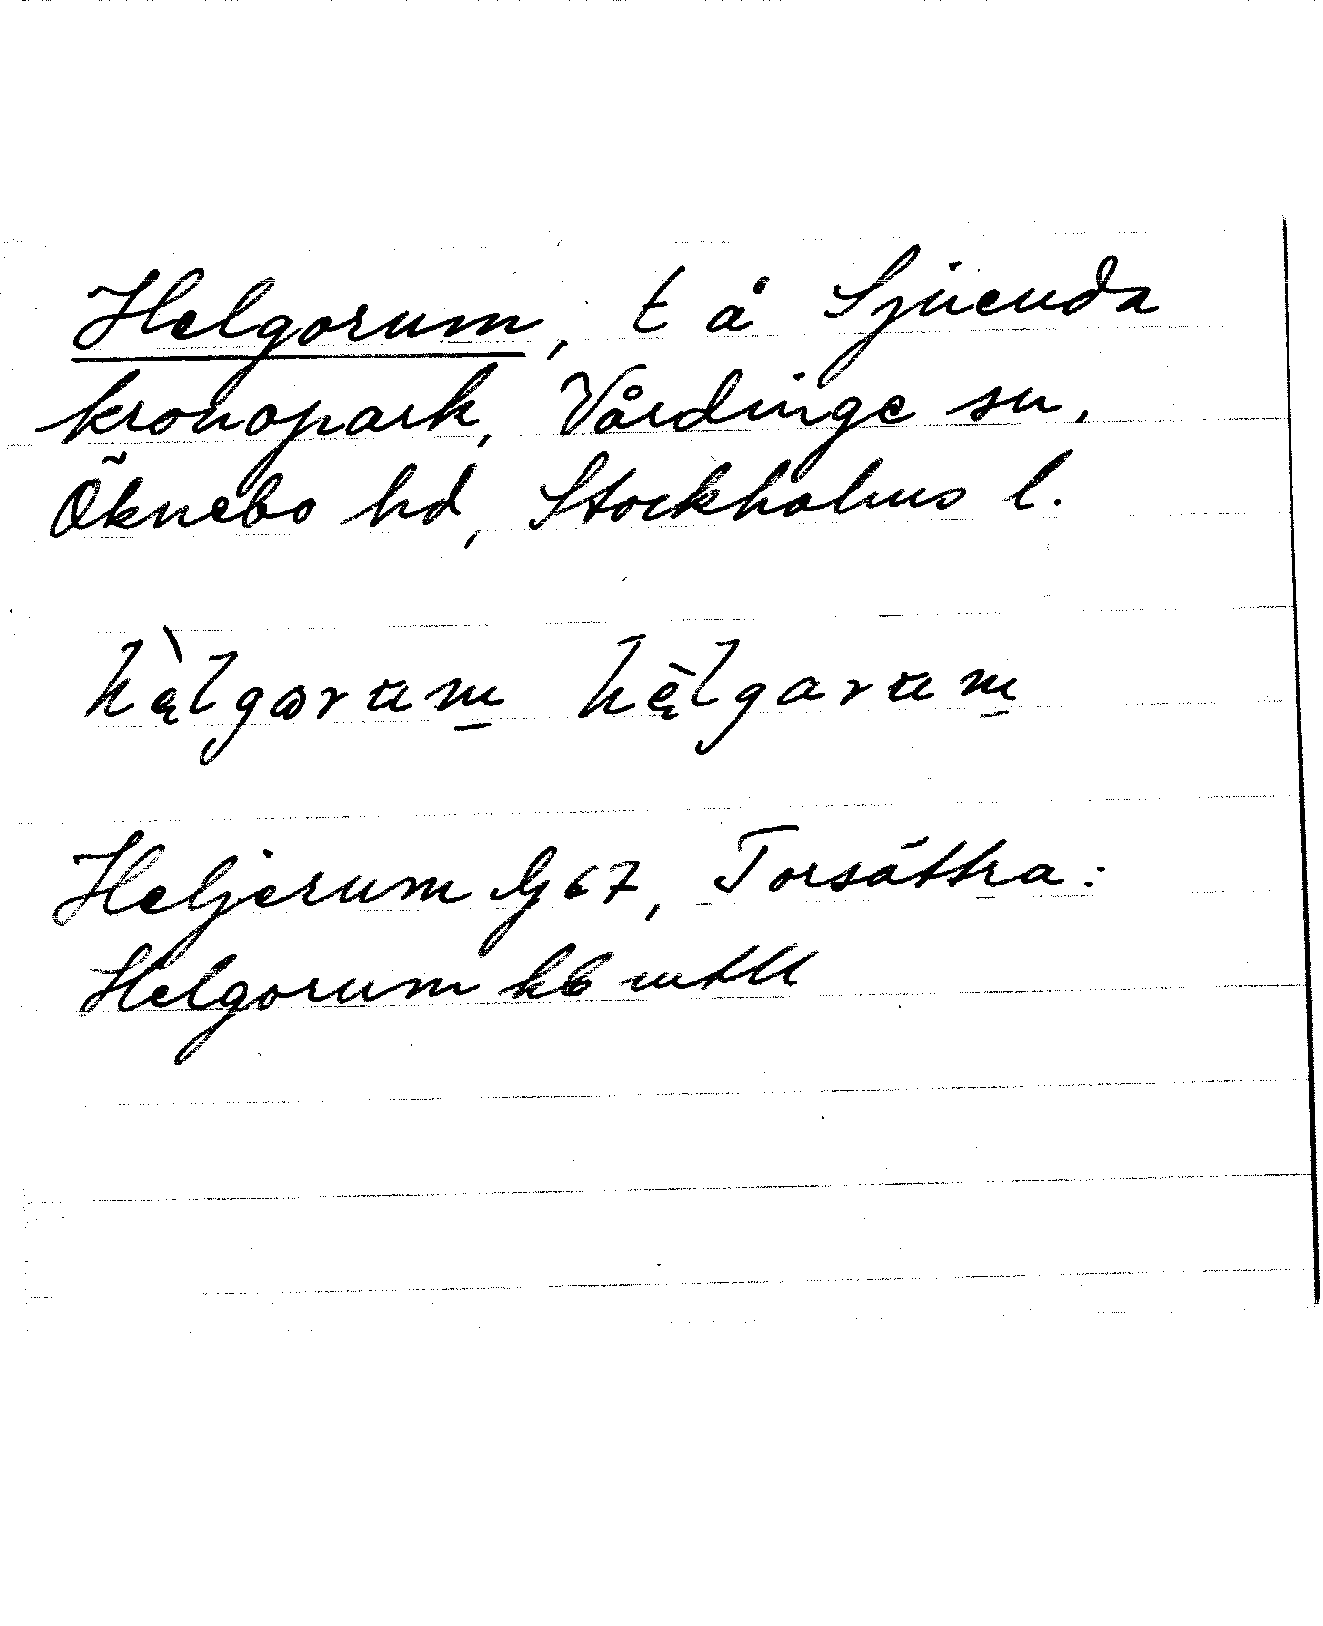 Helgorum, t å Sjuenda
kronopark, Vårdinge sn,
Öknebo hd, Stockholms l.
hèlgorum hèlgarum
Heljerum G 67, Torsättra:
Helgorum kb